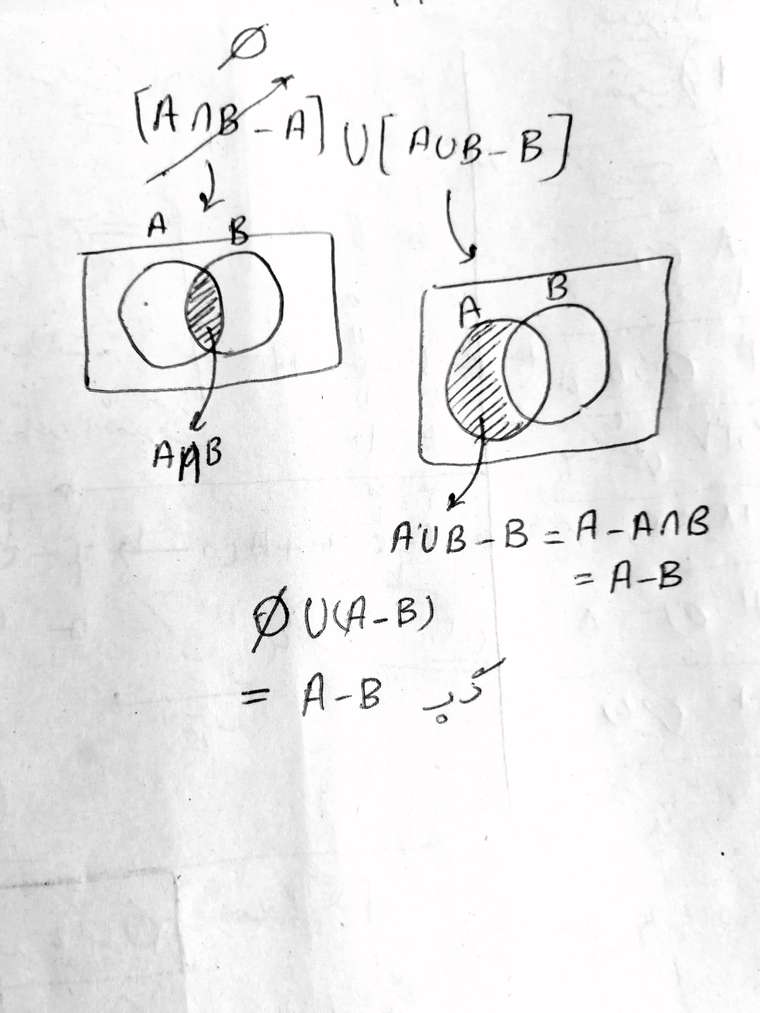 ∅
[A∩B-A] ∪ [A∪B-B]
A B
A B
A∩B
A∪B-B = A-A∩B
= A-B
∅∪(A-B)
= A-B